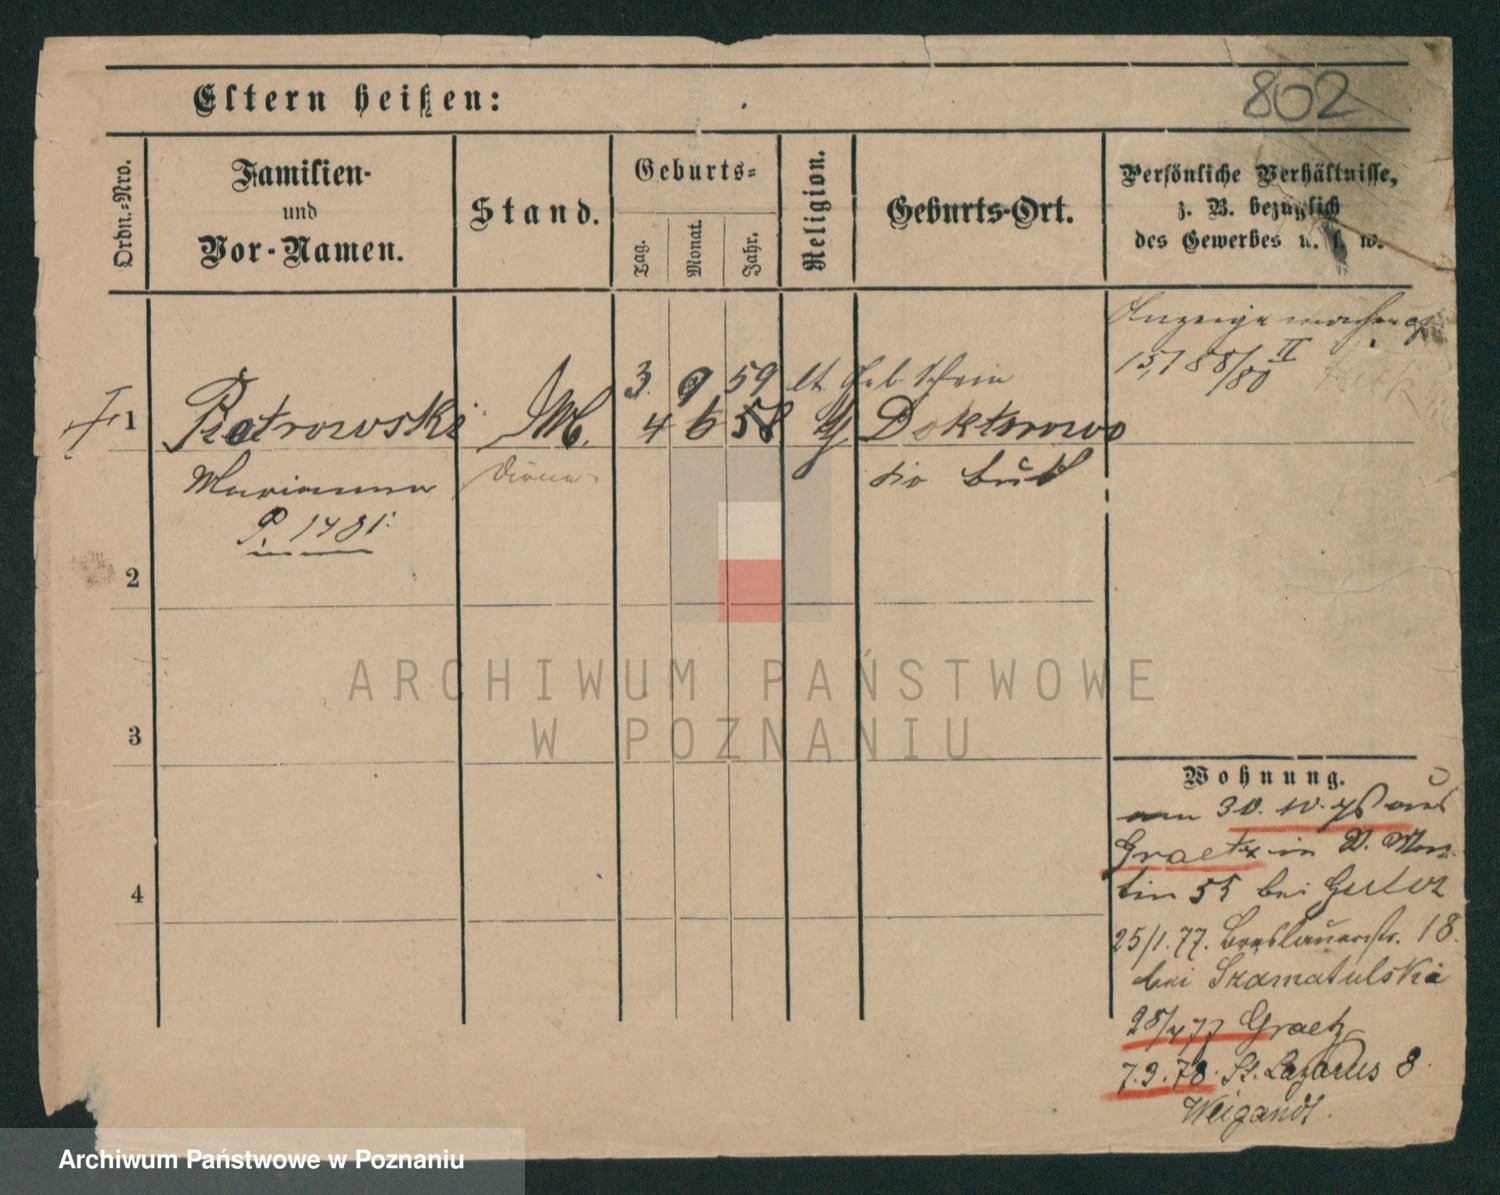 802
Eltern heißen:
Ordn.-Nro.
Familien-
und
Vor-Namen.
Stand.
Geburts-
Tag.
Monat.
Jahr.
Religion.
Geburts-Ort.
Persönliche Verhältnisse,
z. B. bezüglich
des Gewerbes u. s. w.
Anzeige
3. 9 59 lt Geb. Schein
1 Piotrowski M. 4 6 58 Doktorowo
Marianna
bei Buk
P. 1481.
2
3
4
Wohnung.
am 30. 10. 76 aus
Graetz in St. Mar-
tin 55 bei
25/1. 77. Breslauerstr. 18.
bei Szamatulski
28/4 77 Graetz
7.9.78. St. Lazarus 8.
Weigandt.
ARCHIWUM PAŃSTWOWE
W POZNANIU
Archiwum Państwowe w Poznaniu